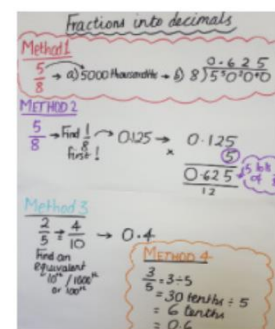 Fractions into decimals
Method 1
0.625
5/8 → a) 5000 thousandths → b) 8)5.0000
METHOD 2
5/8 → Find 1/8 first! → 0.125 → 0.125
× 5
0.625
12
5 lots of
Method 3
2/5 = 4/10 → 0.4
Find an
equivalent
10th / 1000th
or 100th
METHOD 4
3/5 = 3÷5
= 30 tenths ÷ 5
= 6 tenths
= 0.6